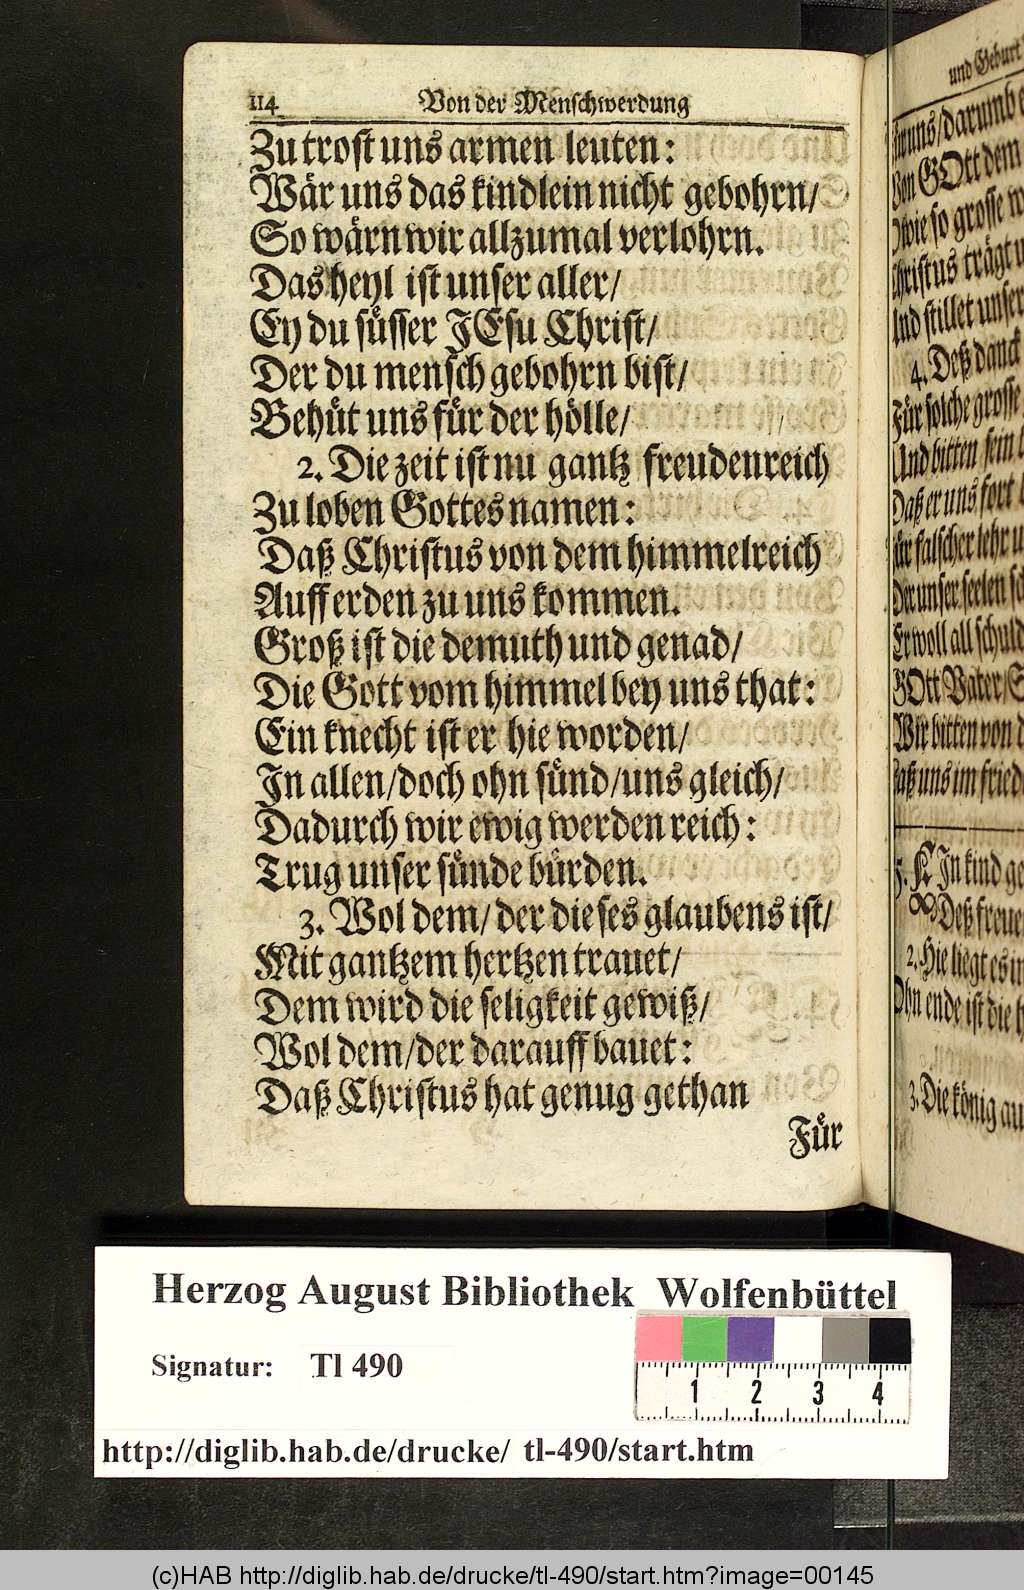 114 Von der Menschwerdung
Zu trost uns armen leuten:
Wär uns das kindlein nicht gebohrn/
So wärn wir allzumal verlohrn.
Das heyl ist unser aller/
Ey du süsser JEsu Christ/
Der du mensch gebohrn bist/
Behüt uns für der hölle/
2. Die zeit ist nu gantz freudenreich
Zu loben Gottes namen:
Daß Christus von dem himmelreich
Auff erden zu uns kommen.
Groß ist die demuth und genad/
Die Gott vom himmel bey uns that:
Ein knecht ist er hie worden/
In allen/doch ohn sünd/uns gleich/
Dadurch wir ewig werden reich:
Trug unser sünde bürden.
3. Wol dem/ der dieses glaubens ist/
Mit gantzem hertzen trauet/
Dem wird die seligkeit gewiß/
Wol dem/der darauff bauet:
Daß Christus hat genug gethan
Für
und Geburt
uns/darumb
Von GOtt dem
wie so grosse
Christus trägt
Und stillet unser
4. Deß danck
Für solche grosse
Und bitten sein
Daß er uns fort
für falscher lehr
Der unser seelen
Er woll all schuld
GOtt Vater/
Wir bitten von
Laß uns im fried
5. EIn kind ge
Deß freue
2. Hie liegt es in
Ohn ende ist die
3. Die könig au
Herzog August Bibliothek Wolfenbüttel
Signatur: Tl 490
1 2 3 4
http://diglib.hab.de/drucke/ tl-490/start.htm
(c)HAB http://diglib.hab.de/drucke/tl-490/start.htm?image=00145